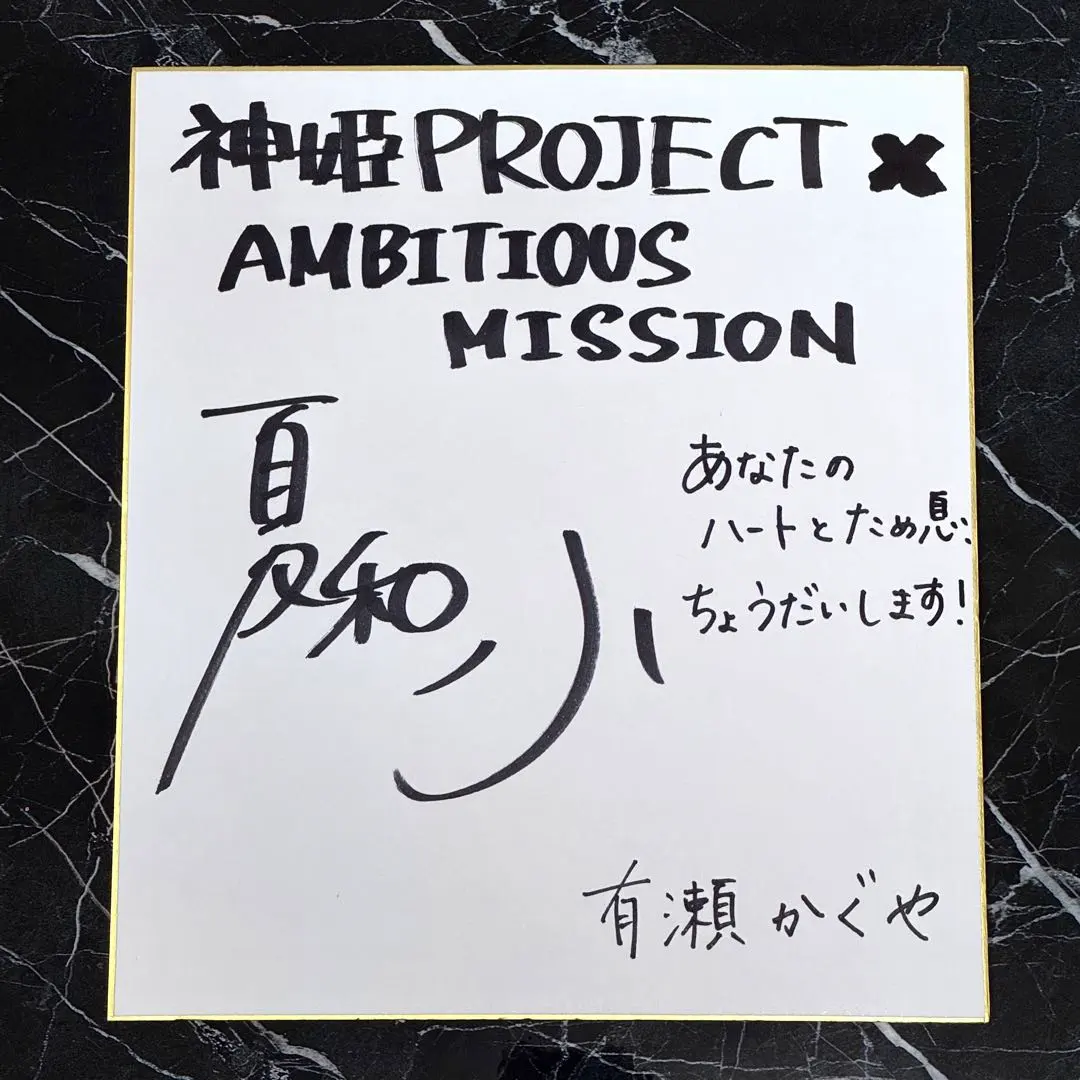 神姫PROJECT ×
AMBITIOUS
MISSION
夏和小
あなたの
ハートとため息、
ちょうだいします!
有瀬かぐや